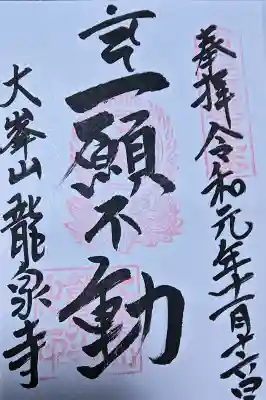 奉拝 令和元年十一月日
一願不動
大峯山 龍泉寺